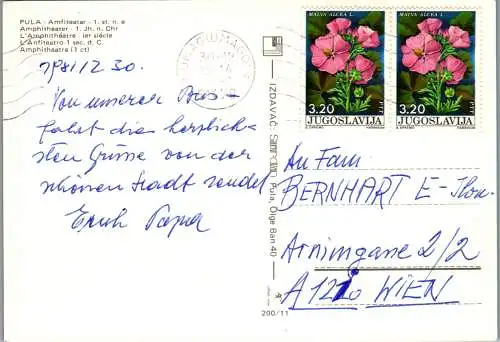 PULA - Amfiteatar - 1. st. n. e
Amphitheater - 1. Jh. n. Chr
L'Amphithéatre - 1er siècle
L'Anfiteatro 1 sec. d. C.
Amphitheatre (1 ct)
Von unserer Bus-
fahrt die herzlich-
sten Grüsse von der
schönen Stadt sendet
Erich
IZDAVAČ
Pula, Olge Ban 40
200/11
MALVA ALCEA L.
3,20
PTT
JUGOSLAVIJA
MALVA ALCEA L.
3,20
PTT
JUGOSLAVIJA
An Fam
BERNHART E
Arnimgasse 2/2
WIEN